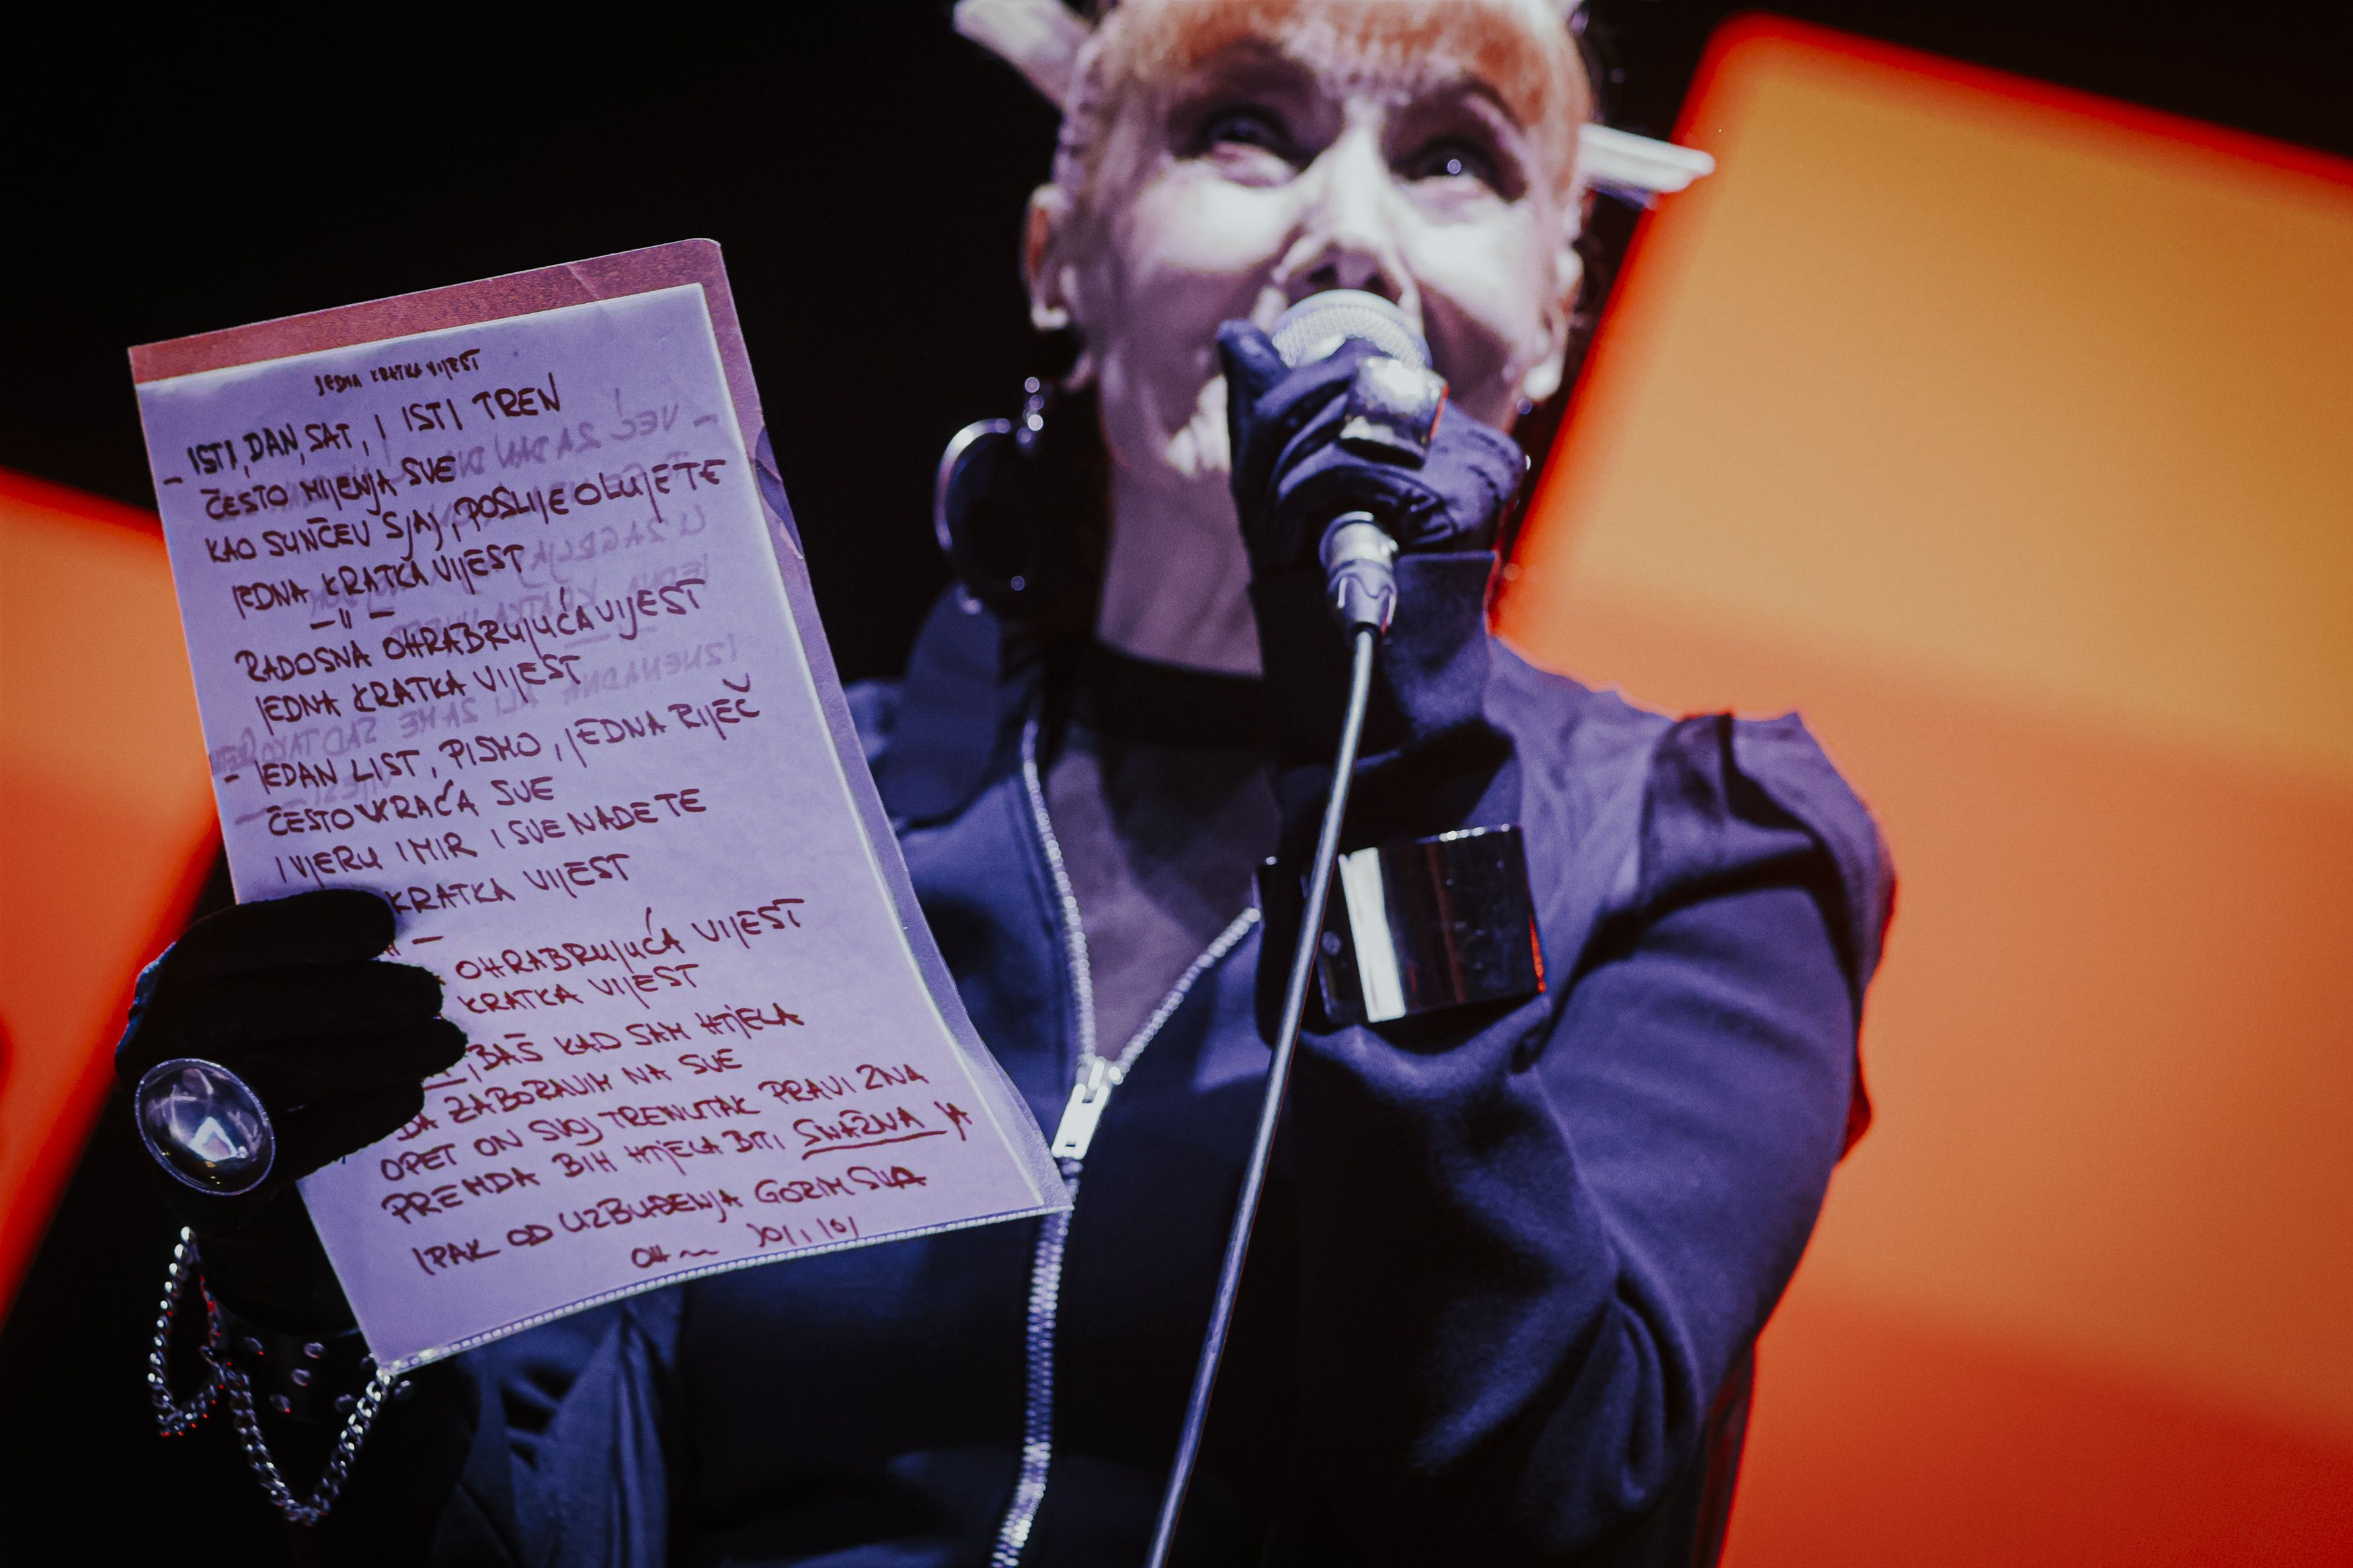 JEDNA KRATKA VIJEST
- ISTI, DAN, SAT, I ISTI TREN
ČESTO MIJENJA SVE
KAO SUNČEV SJAJ, POSLIJE OLUJE TE
JEDNA KRATKA VIJEST
— " —
RADOSNA OHRABRUJUĆA VIJEST
JEDNA KRATKA VIJEST
- JEDAN LIST, PISMO, JEDNA RIJEČ
ČESTO VRAĆA SVE
I VJERU I MIR I SVE NADE TE
KRATKA VIJEST
OHRABRUJUĆA VIJEST
KRATKA VIJEST
, BAŠ KAD SAM HTJELA
DA ZABORAVIM NA SVE
OPET ON SVOJ TRENUTAK PRAVI ZNA
PREMDA BIH HTJELA BITI SNAŽNA JA
IPAK OD UZBUĐENJA GORIM SVA
OH